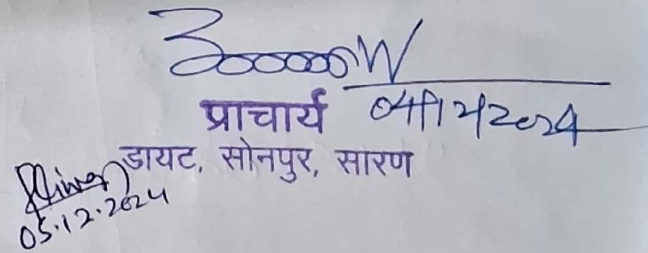 प्राचार्य 04/12/2024
डायट, सोनपुर, सारण
05.12.2024